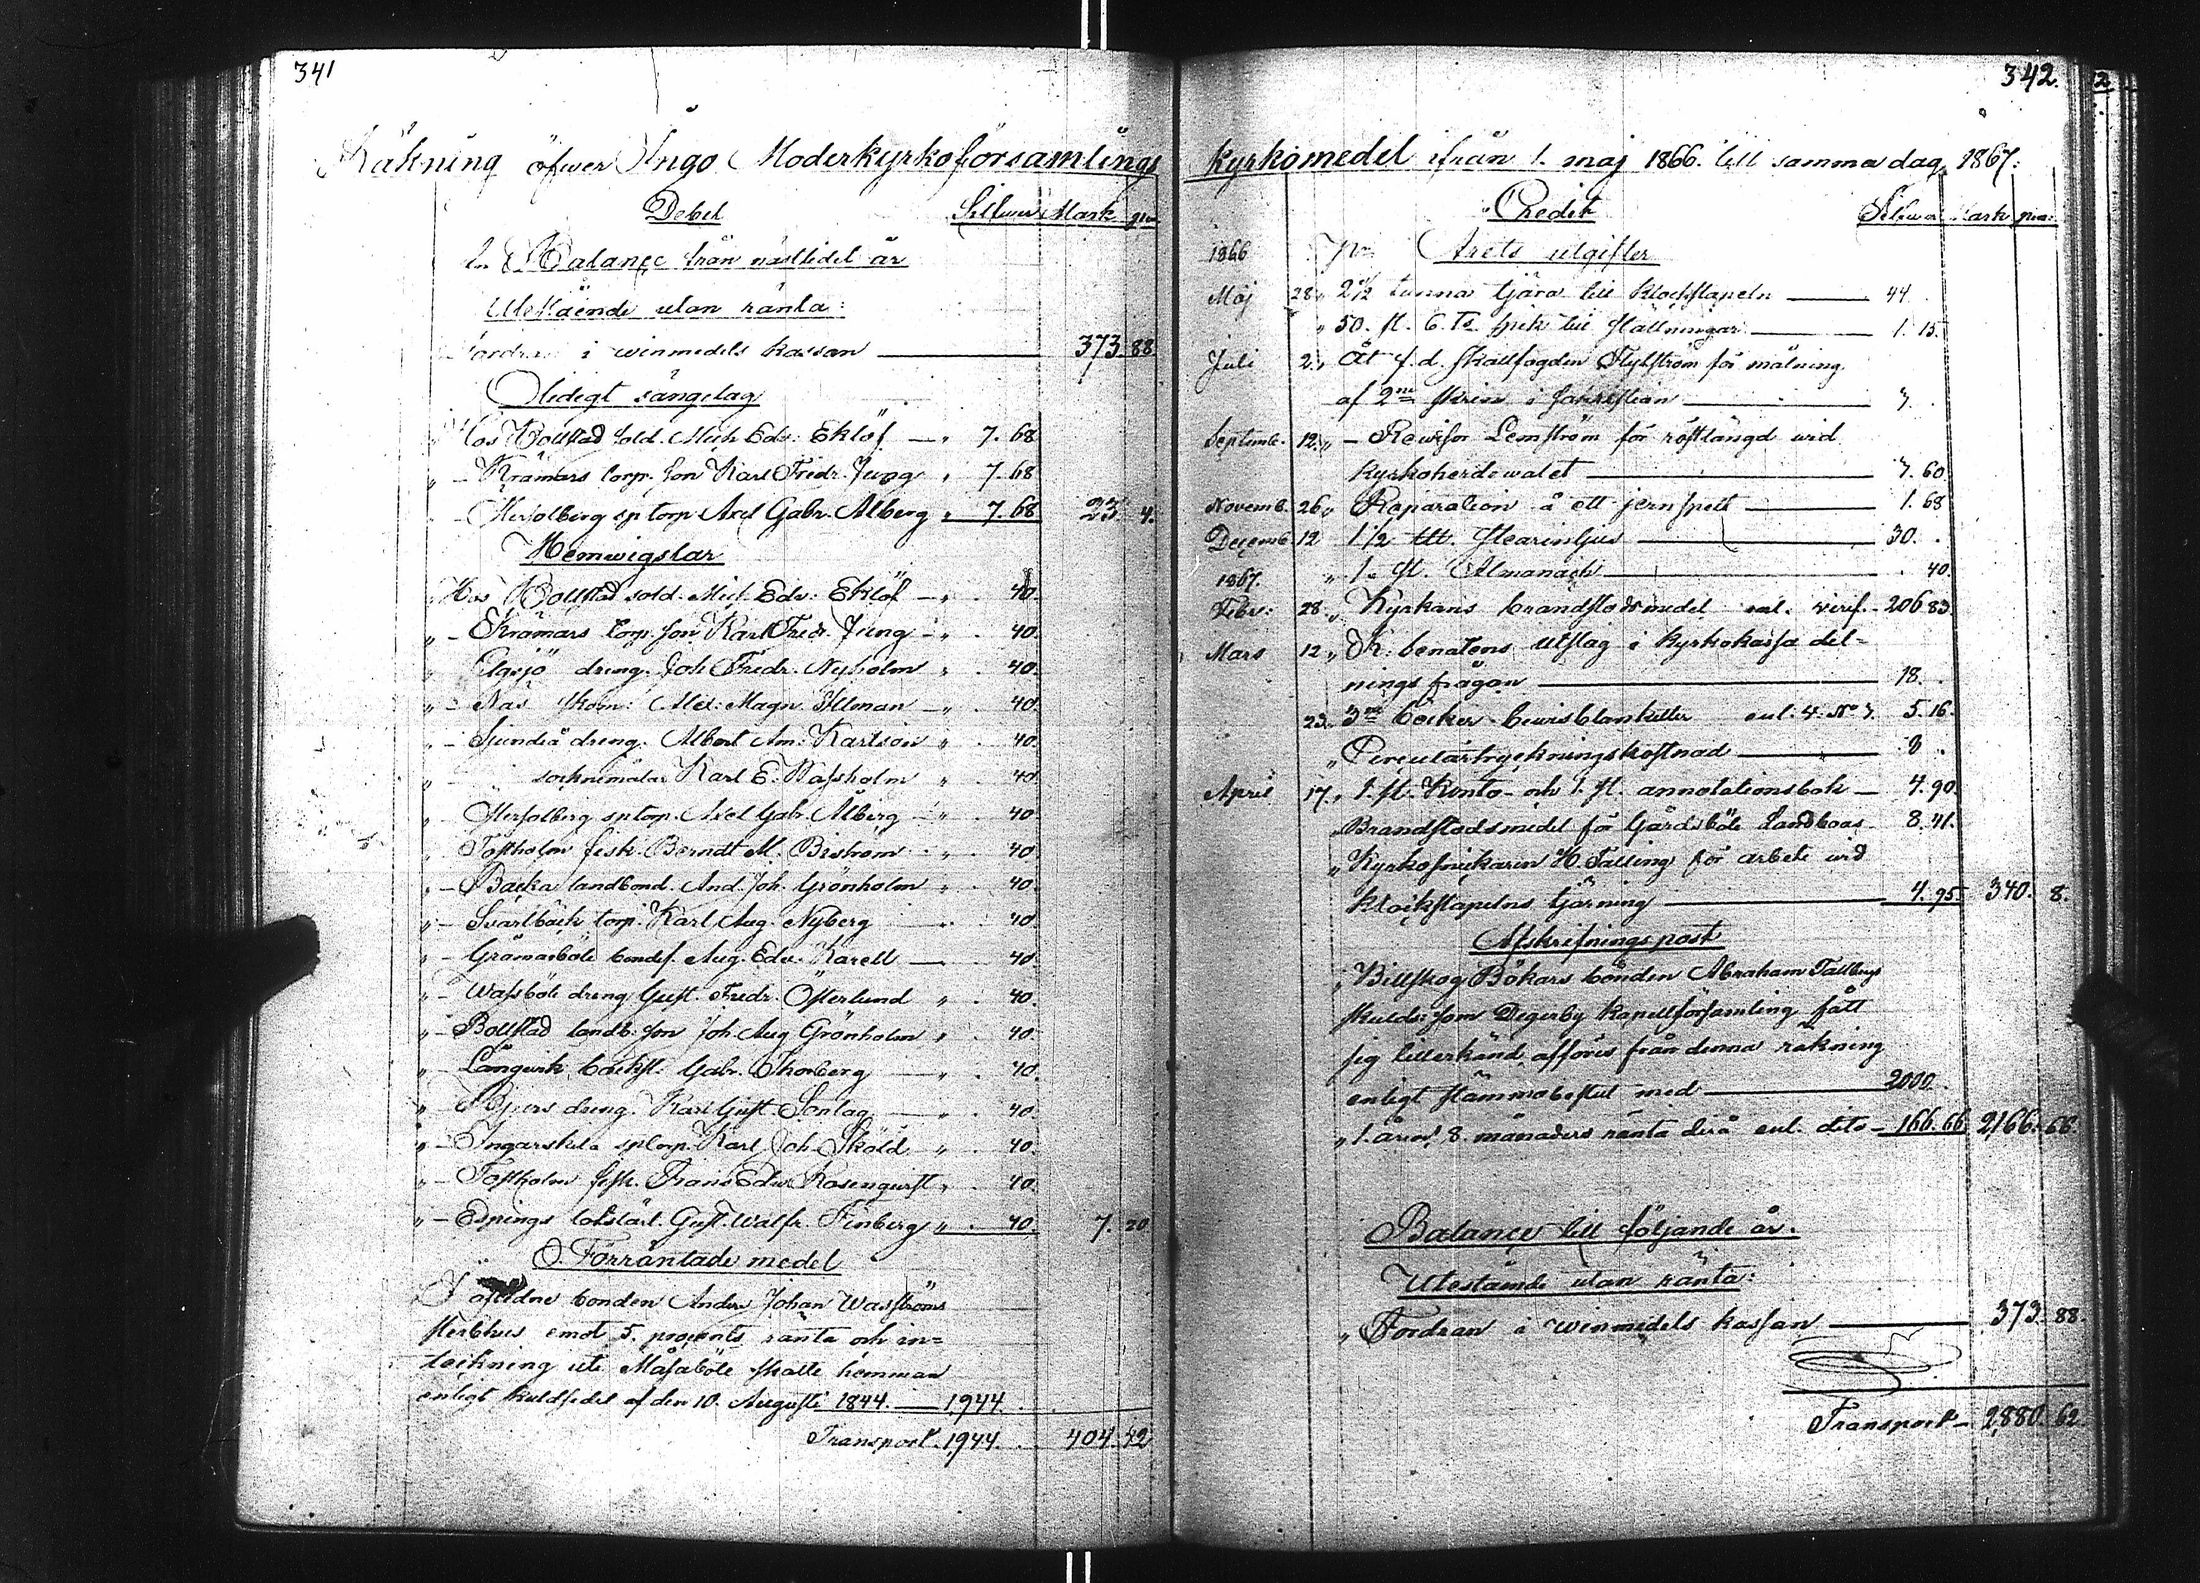 341
Räkning öfwer Ingo Moderkyrkoförsamlings
Debet Silfwer Mark pni
Balance från nästledet år
Utestående utan ränta:
Fordran i winmedels kassan 373. 88
Oledigt sängelag
Hos Bollstad sold. Mich Edv: Eklöf — " 7. 68
" — Krämars torp. son Karl Fredr. Jung " 7. 68
" — Hersolberg sp torp. Axel Gabr. Alberg " 7. 68 23. 4.
Hemwigslar
Hos Bollstad sold. Mich. Edv: Eklöf — " . 40.
" — Krämars torp. son Karl Fredr. Jung — " . 40.
" — Elgsjö dreng. Joh Fredr. Nyholm " . 40.
" — Näs skom: Alex: Magn. Illman — " . 40.
" — Sjundeå dreng. Albert Am: Karlson " . 40.
" socknemålar Karl E. Wassholm " . 40
" — Hersolberg sptorp. Axel Gabr. Alberg — " . 40
" — Tostholm fisk. Berndt M. Biström — " . 40.
" — Backa landbond. And. Joh. Grönholm " . 40.
" — Svartbäck torp. Karl Aug. Nyberg — . 40
" — Gråmarböle bondes. Aug. Edv. Karell — . 40.
" — Wassböle dreng Gust. Fredr. Österlund " . 40.
" — Bollstad landb. son Joh. Aug Grönholm " . 40.
" — Långwik backst. Gabr. Skorberg — " . 40.
" — Bjers dreng. Karl Gust. Sonlag — " . 40.
" — Ingarskila sptorp. Karl Joh Sköld " . 40.
" — Tostholm fisk. Frans Edw. Rosenqwist " . 40.
" — Espings lotslärl. Gust. Walfr. Finberg " . 40. 7. 20
O. Förräntade medel
I aflidne bonden Anders Johan Waströms
sterbhus emot 5. procents ränta och in=
teckning uti Måsaböle skatte hemman
enligt skuldsedel af den 10. Augusti 1844. — 1,944.
Transport. 1,944. . 404. 12
342.
kyrkomedel ifrån 1. maj 1866. till samma dag 1867:
Credit Silfwer Mark pni:
1866 Pr Årets utgifter
Maj 28. " 2 1/2 tunna tjära till klockstapeln — 44.
" 50. st. 6. T. spik till ställningar — 1. 15.
Juli 2. " Åt f. d. skallfogden Flykström för målning
af 2ne skrin i sakristian — 3.
Septemb. 12. " — Rewisor Lemström för röstlängd wid
kyrkoherdewalet — 3. 60.
Novemb. 26. " Reparation å ett jernspett — 1. 68
Decemb. 12 1 1/2 stearinljus — 30. .
1867. " 1. st. Almanach — . 40.
Febr: 28. " Kyrkans brandstodsmedel enl. verif. — 206 83.
Mars 12 " K. Senatens utslag i kyrkokassa del=
nings frågan — 18. .
23. " 3ne böcker bewisblanketter enl. 4. No 3. 5. 16.
" Circulärtryckningskostnad — . 8 .
April 17. " 1. st. Konto- och 1. st. annotationsbok — 4. 90.
" Brandstodsmedel för Gårdsböle Landboas 8. 41.
" Kyrkosnickaren H. Talling för arbete wid
klockstapelns tjärning — 4. 95. 340. 8.
Afskrifningspost
" Billskog Bökars bonden Abraham Tallbergs
skuld: som Degerby kapellförsamling fått
sig tillerkänd afföres från denna räkning
enligt stämmobeslut med — 2000.
" 1. år och 8. månaders ränta derå enl. dito — 166. 66. 2,166. 66.
Balance till följande år.
Utestående utan ränta:
" Fordran i winmedels kassan — 373. 88.
Transport — 2,880. 62